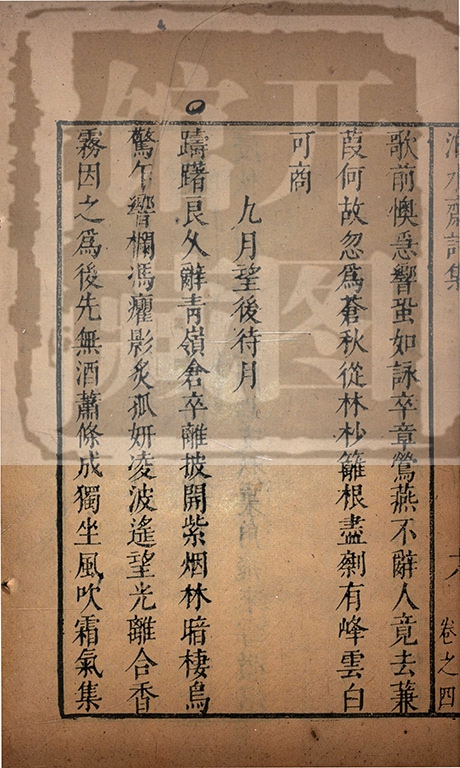 泊水齋詩集
卷之四
歌前懊急響蛩如詠卒章鶯燕不辭人竟去蒹
葭何故忽爲蒼秋從林杪籬根盡剩有峰雲白
可商
九月望後待月
躊躇良久辭青嶺倉卒離披開紫烟林暗棲烏
驚乍響欄馮癯影炙孤妍凌波遙望光離合香
霧因之爲後先無酒蕭條成獨坐風吹霜氣集
开图
馆藏